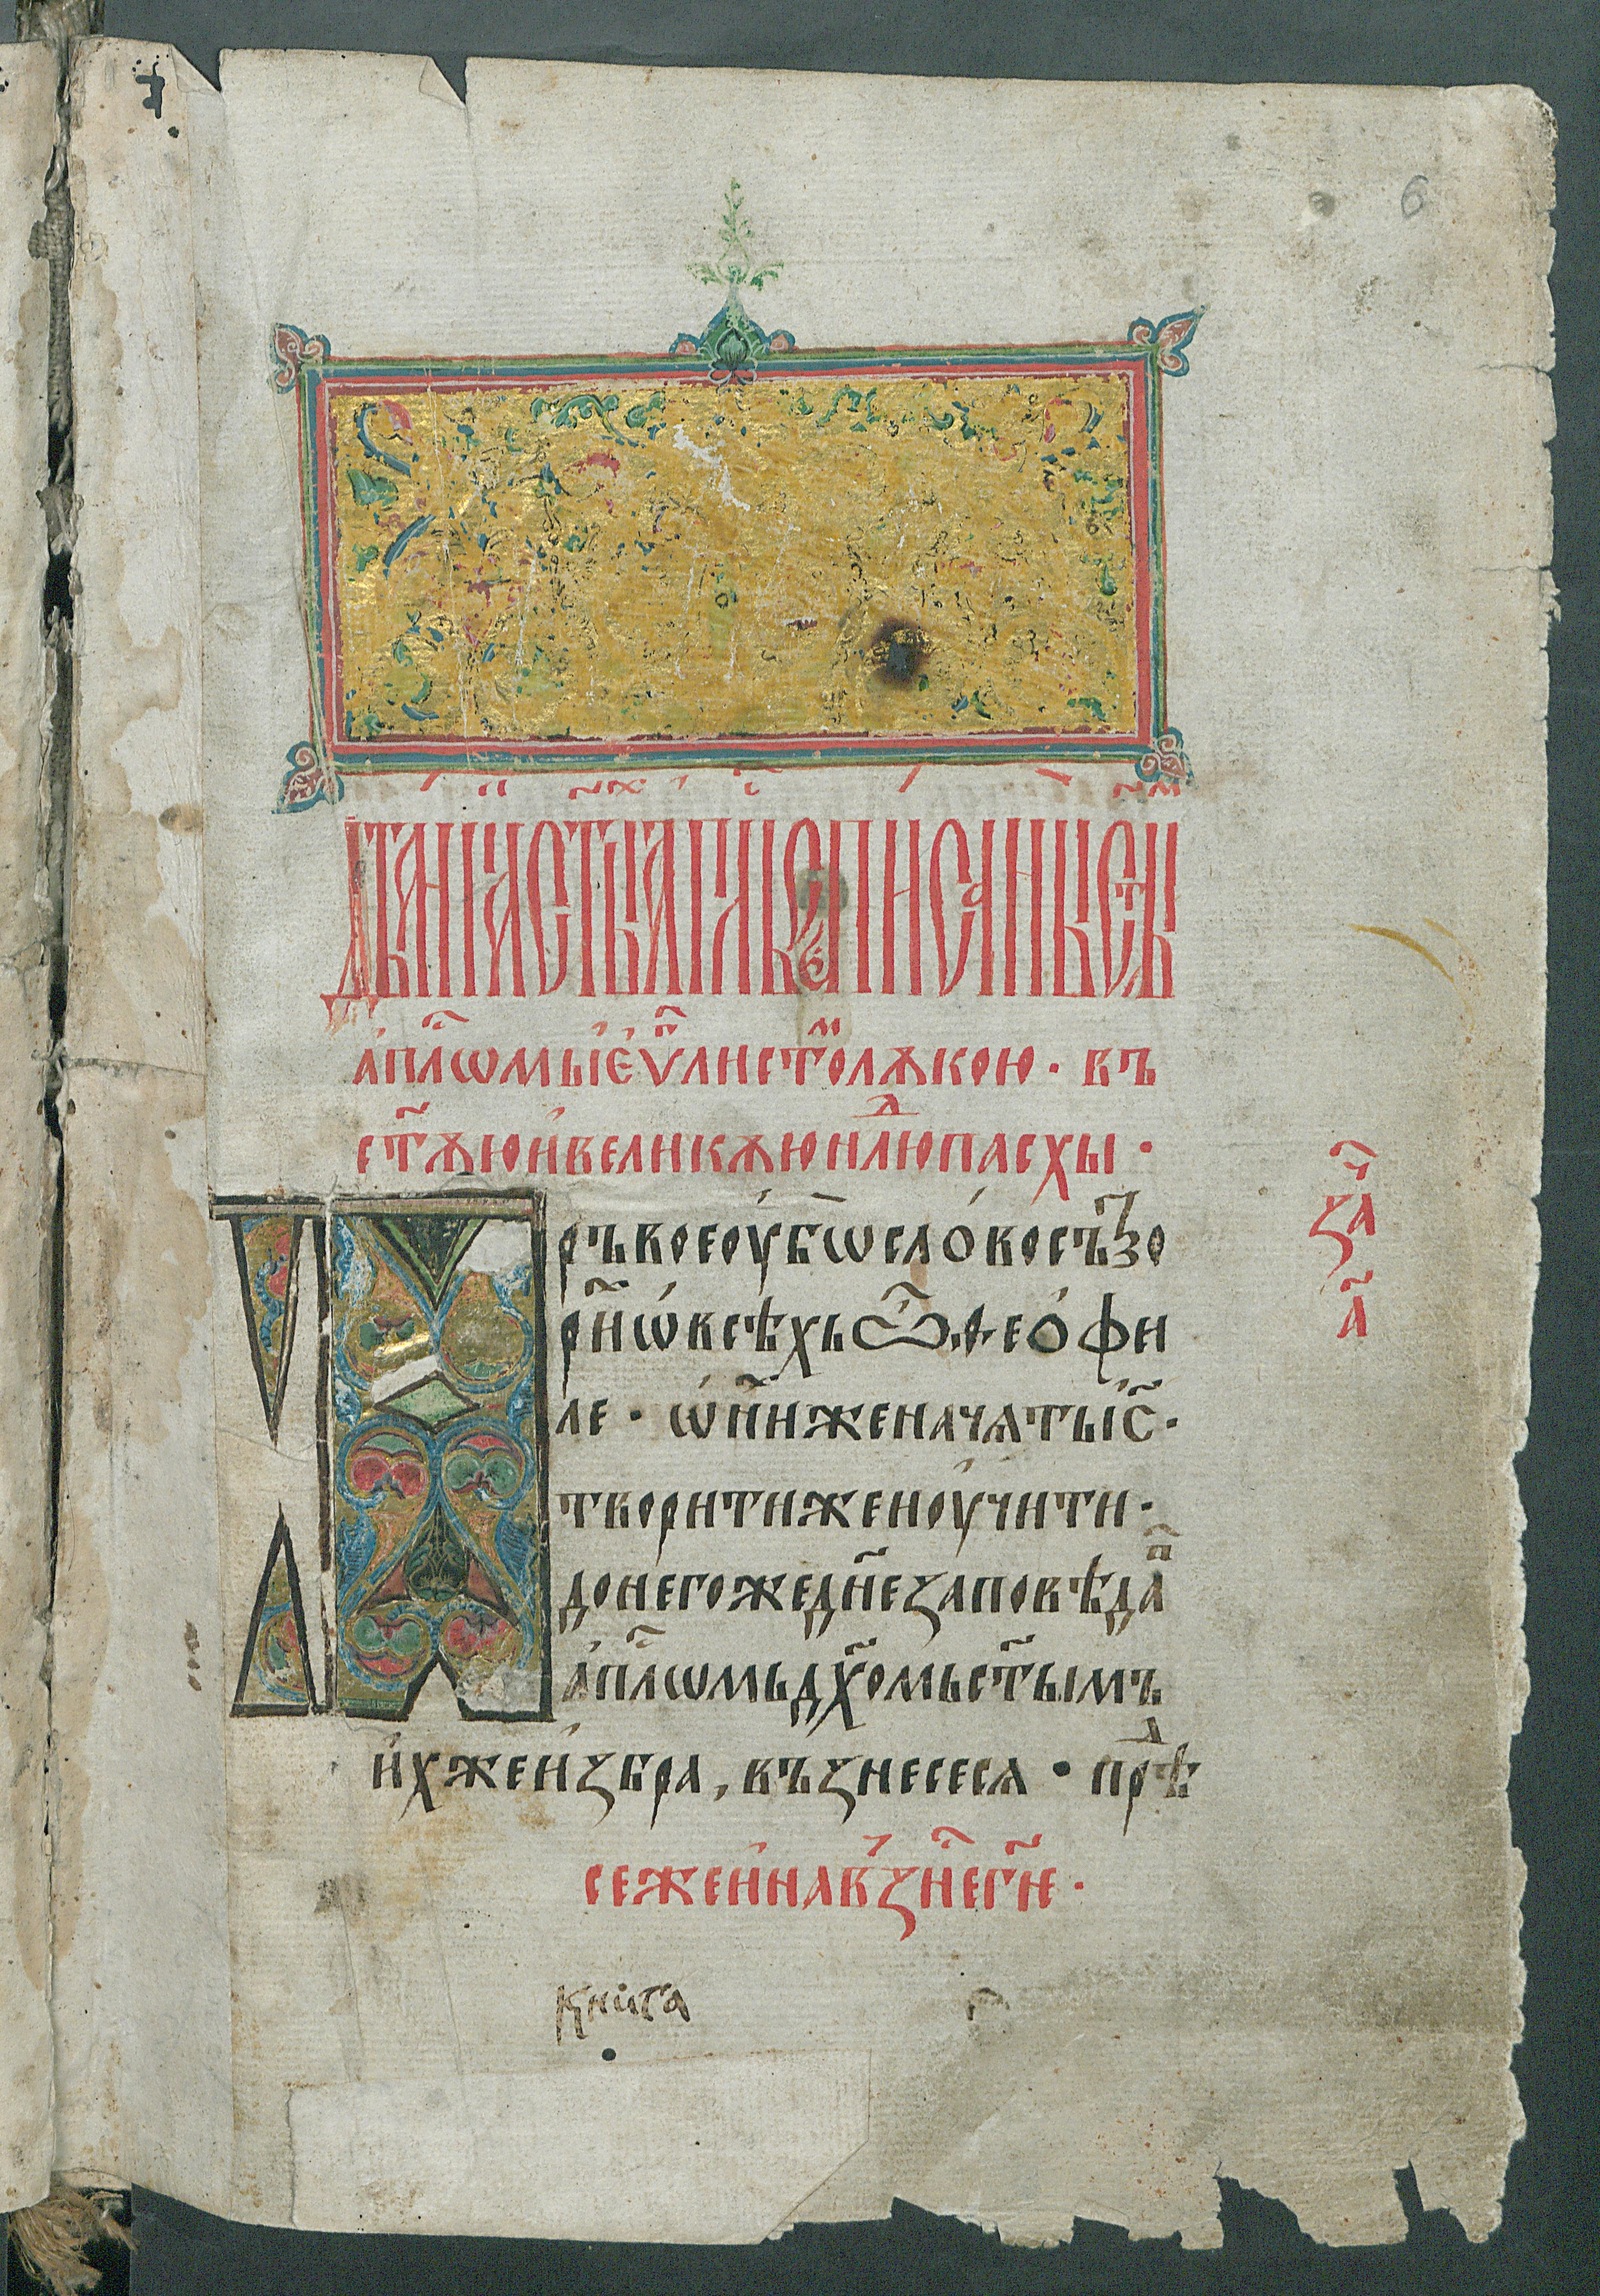 6
Дѣꙗнїа ст҃ы́хъ апⷭ҇лъ списана ст҃ы́мъ
а҆пⷭ҇лѡмь і҆ є҆ѵⷢ҇листоⷨ лѫкою · въ
ст҃ѫю и҆ великѫю нⷣлю пасхы ·
Пръвое оу҆бѡ сло́во сътво
рⷯи ѡ҆ в̾сѣхь ѽ ѳео́фи
ле · ѡ҆ ни҆хже начѧть і҆с҃ ·
творити же и оу҆чи́ти ·
до него же дн҃е заповѣдаⷡ
а҆пⷭ҇лѡмь дх҃омь ст҃ымъ
и҆хже и҆збра, възнесесѧ · прѣⷣ
сеже и҆ на въ́знⷭ҇е гн҃е ·
заⷱ҇
а҃
книга